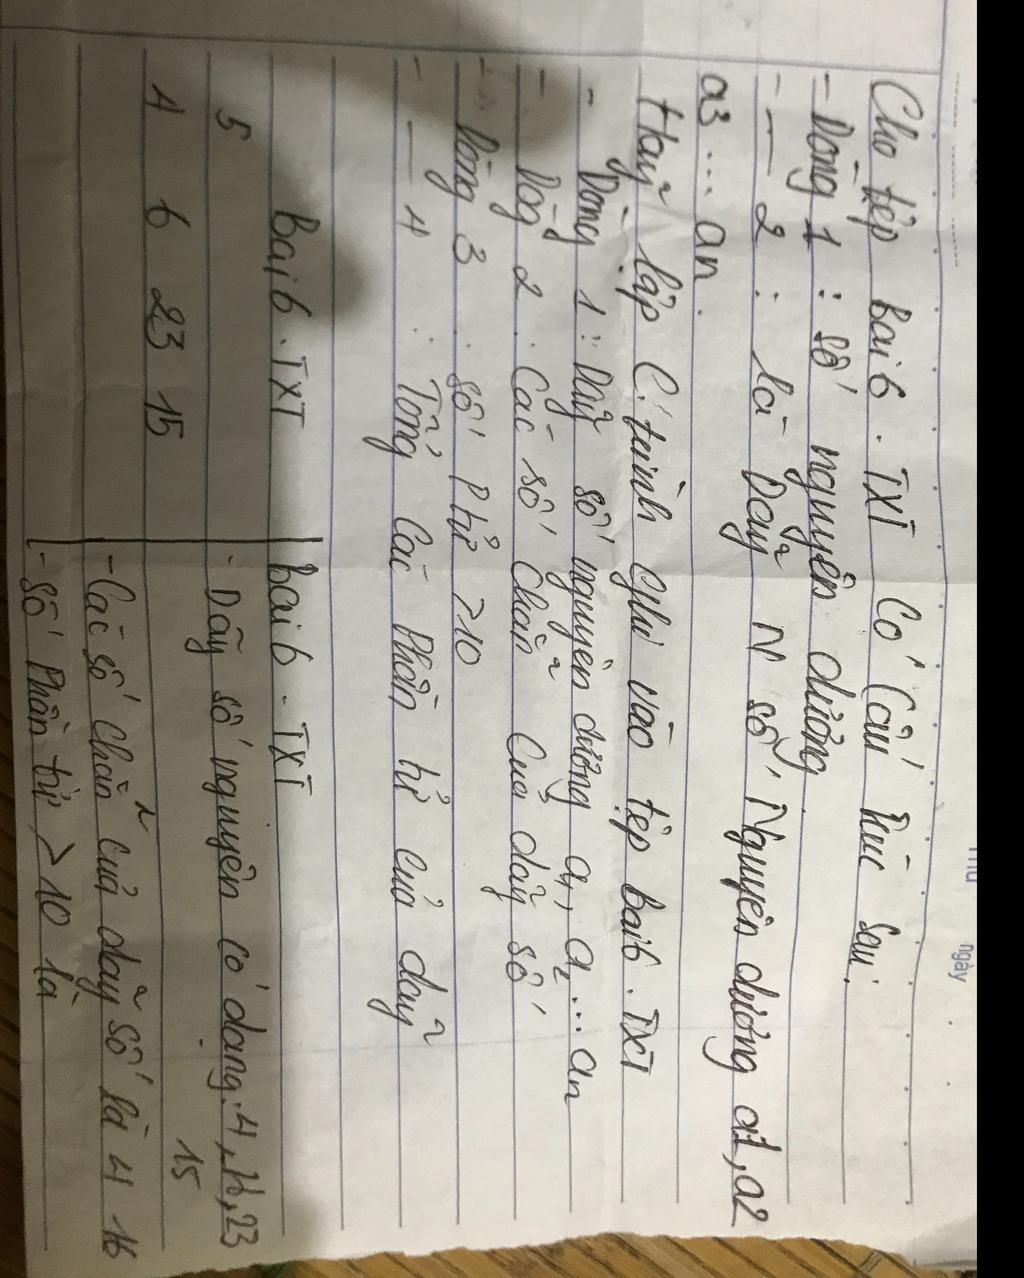 ngày
Cho tệp bai6.TXT Có Cấu trúc sau:
- Dòng 1 : số nguyên dương
- — 2 : là Dãy N số Nguyên dương a1, a2
a3 ... an.
Hãy lập C.trình ghi vào tệp bai6.TXT
- Dòng 1 : Dãy số nguyên dương a1, a2 ... an
- Dòg 2 . Các số chẵn của dãy số
- Dòng 3 . số Ptử >10
- — 4 . Tổng Các Phần tử của dãy
Bai6.TXT
bai6.TXT
5
- Dãy số nguyên có dạng: 4, 16, 23
15
4 6 23 15
- Các số chẵn của dãy số là 4 16
- Số Phần tử > 10 là